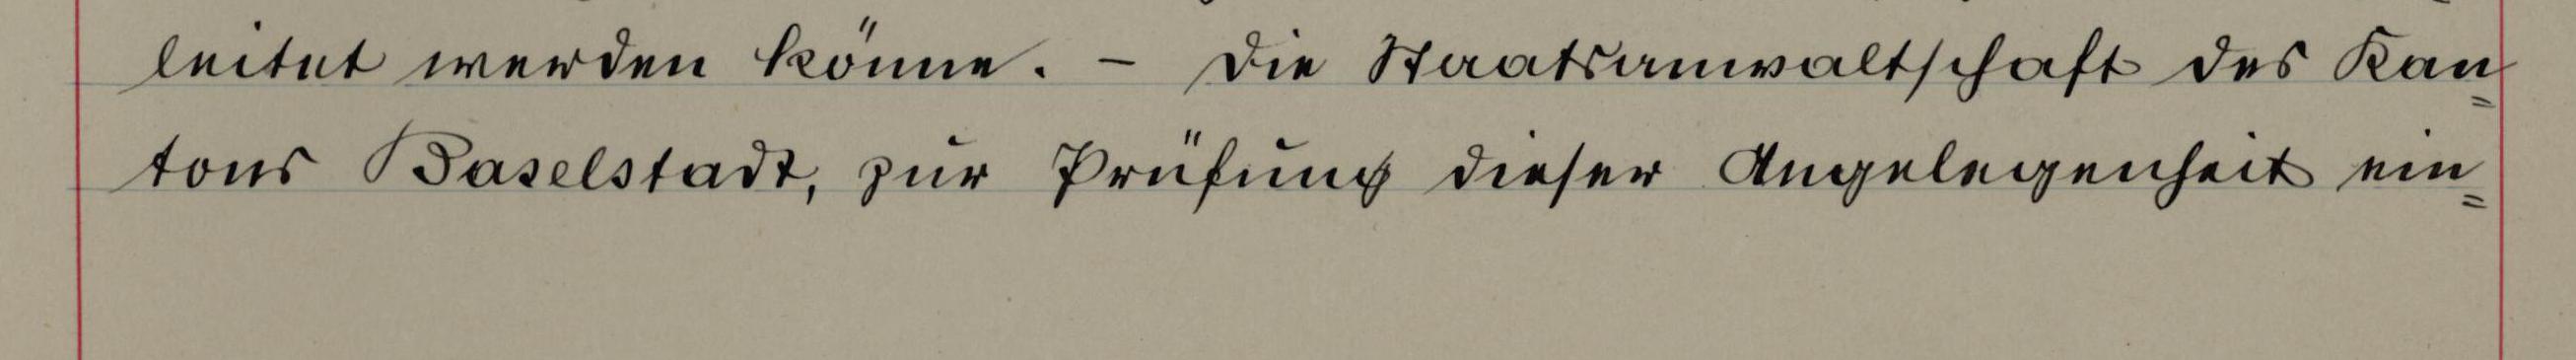 leitet werden könne. – Die Staatsanwaltschaft des Kan=
tons Baselstadt, zur Prüfung dieser Angelegenheit ein=